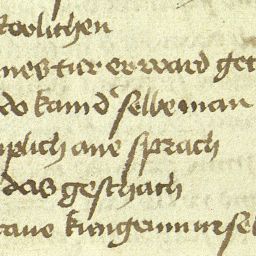 roelichen
nes tier er ward get
do kam d' selbe man
plich ane sprach
das geschach
kungenn